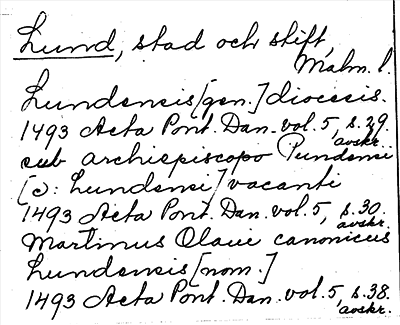 Lund, stad och stift,
Malm. l.
Lundensis [gen.] diocesis.
1493 Acta Pont. Dan. vol. 5, s. 29
avskr.
sub archiepiscopo Pundensi
[ɔ: Lundensi] vacanti
1493 Acta Pont. Dan. vol. 5, s. 30.
avskr.
Martinus Olaui canonicus
Lundensis [nom.]
1493 Acta Pont. Dan. vol. 5, s. 38.
avskr.